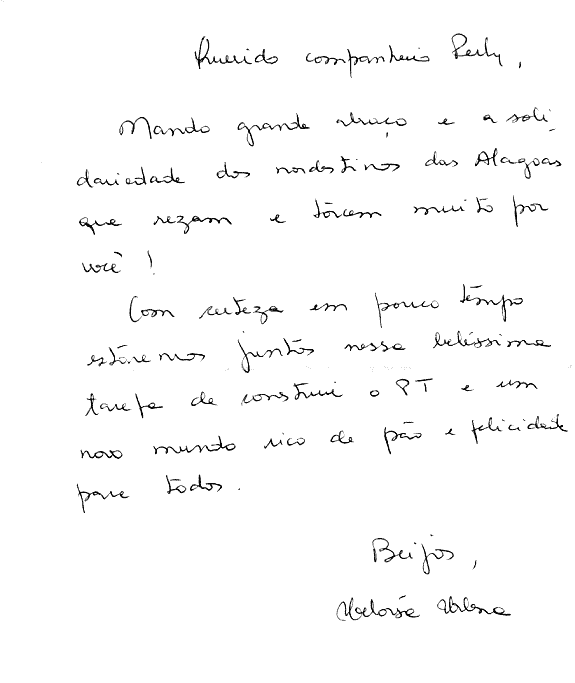 Querido companheiro Perly,
Mando grande abraço e a soli-
dariedade dos nordestinos das Alagoas
que rezam e tôrcem muito por
você!
Com certeza em pouco têmpo
estaremos juntos nessa belíssima
tarefa de construir o PT e um
novo mundo rico de pão e felicidade
para todos.
Beijos,
Heloísa Helena